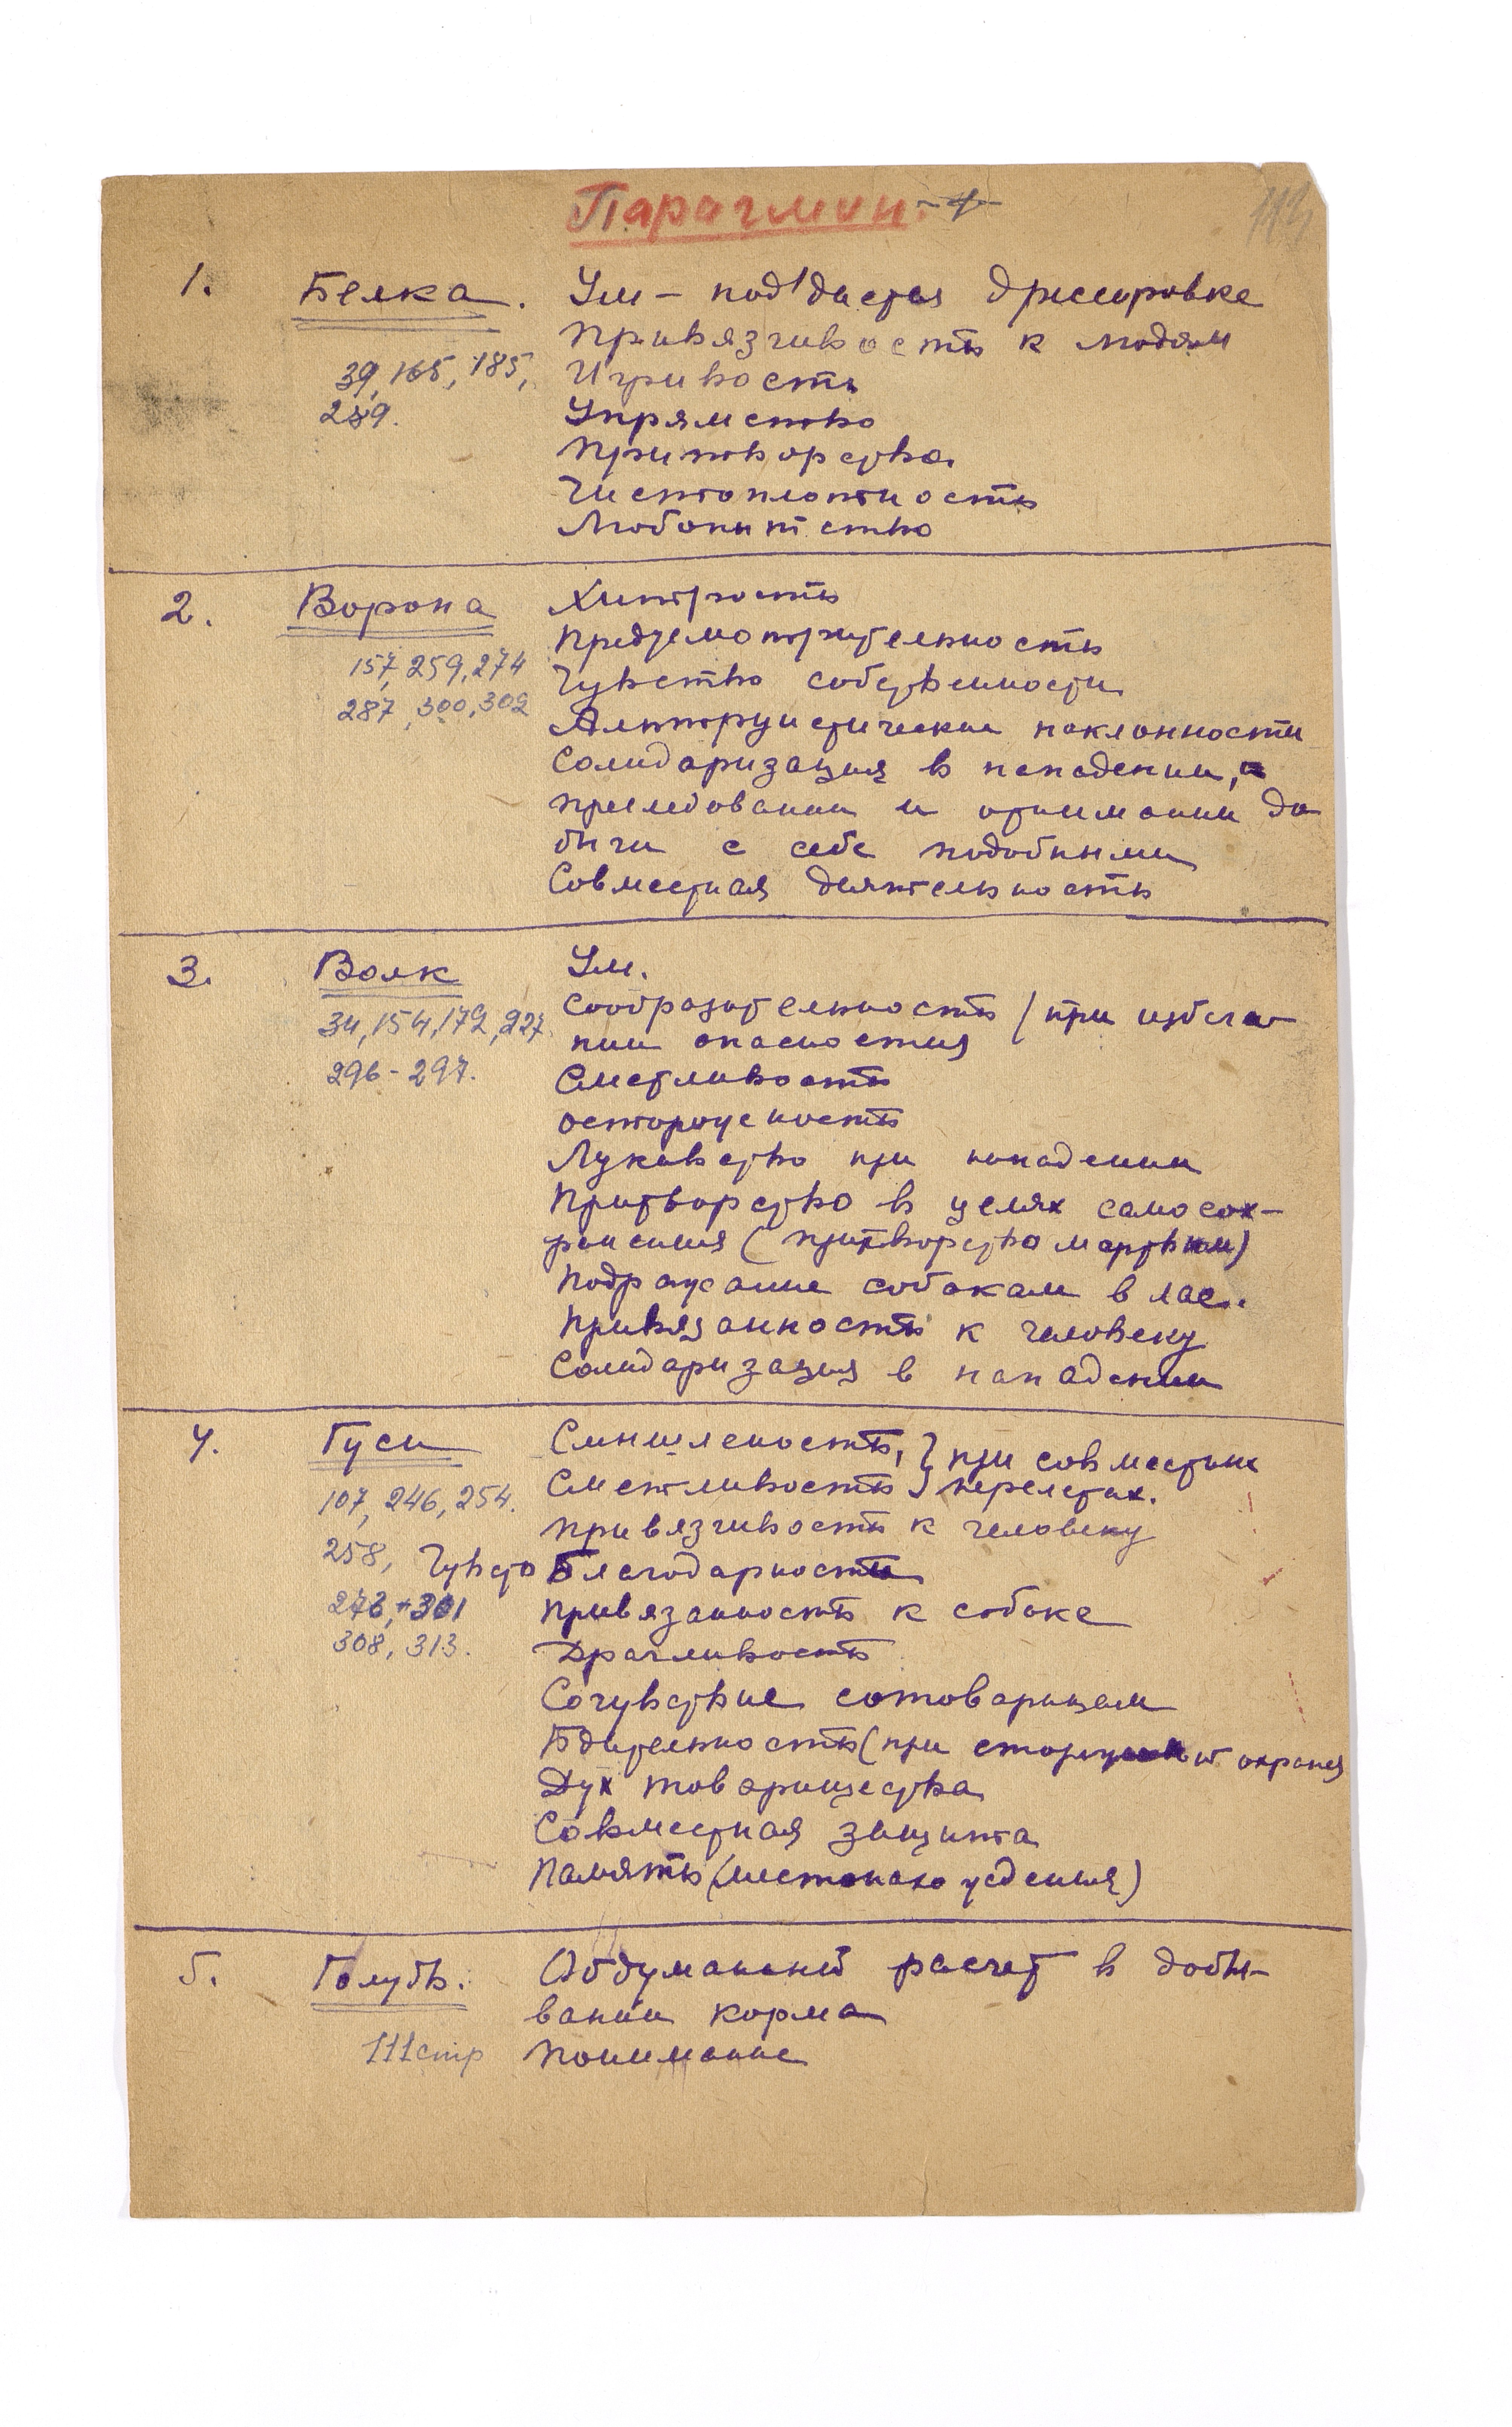 Парагмин. -1-
1. Белка. Ум - под'дается дрессировке
Привязчивость к людям
39, 165, 185, Игривость
289. Упрямство
Притворство.
Чистоплотность
Любопытство
2. Ворона Хитрость
Предусмотрительность
157, 259, 274 Чувство собственности
287, 300, 302 Альтруистические наклонности
Солидаризация в нападении,
преследовании и отнимании до
бычи с себе подобными
Совместная деятельность
3. Волк Ум.
Сообразительность (при избега-
34, 154, 172, 227 нии опасностия
296-297. Сметливость
осторожность
Лукавство при нападении
Притворство в целях самосох-
ранения (притворство мертвым)
Подражание собакам в лае.
Привязанность к человеку
Солидаризация в нападении
4. Гуси Смышленость, } при совместных
107, 246, 254. Сметливость } перелетах.
Привязчивость к человеку
258, Чувство Благодарности
276, + 301 Привязанность к собаке
308, 313. Драчливость
Сочувствие сотоварищам
Бдительность (при охране)
Дух товарищества
Совместная защита
Память (местонахождения)
5. Голубь. Обдуманный расчет в добы-
вании корма
111 стр Понимание